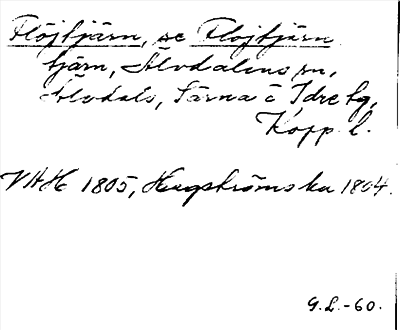 Flöjtjärn, se Flöjtjärn
tjärn, Älvdalens sn,
Älvdals, Särna o Idre tg,
Kopp. l.
VAH 1805, Hagströmska 1804.
G.L.-60.